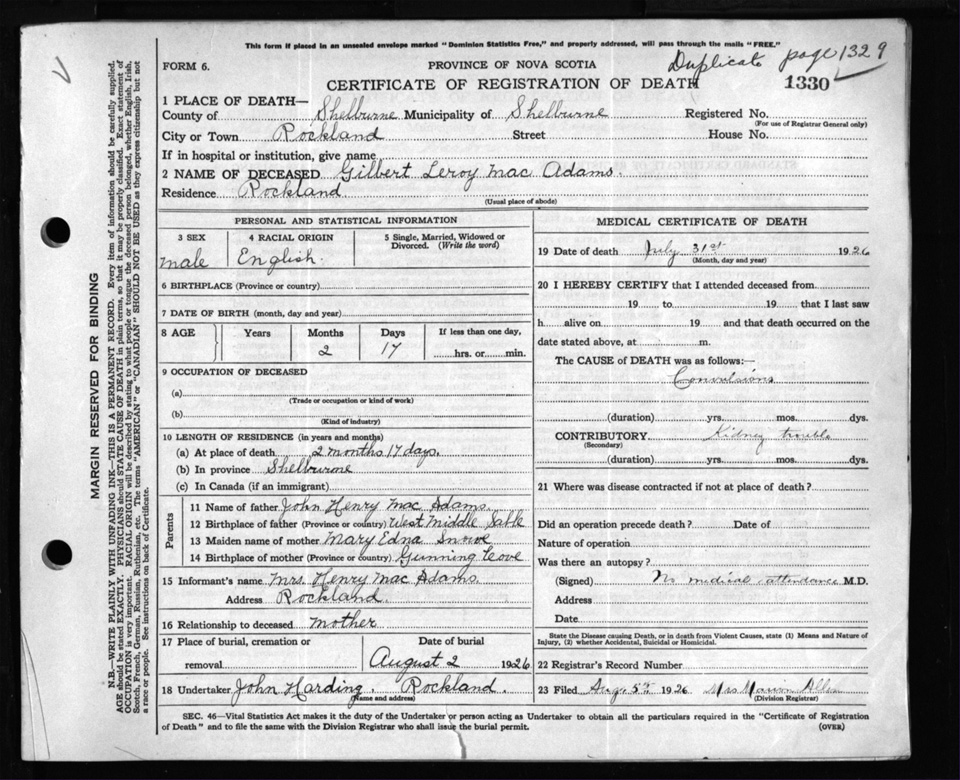 This form if placed in an unsealed envelope marked "Dominion Statistics Free," and properly addressed, will pass through the mails "FREE."
Duplicate page 1329
FORM 6.
PROVINCE OF NOVA SCOTIA
CERTIFICATE OF REGISTRATION OF DEATH
1330
1 PLACE OF DEATH—
County of Shelburne Municipality of Shelburne Registered No.
(For use of Registrar General only)
City or Town Rockland Street House No.
If in hospital or institution, give name
2 NAME OF DECEASED Gilbert Leroy Mac Adams.
Residence Rockland
(Usual place of abode)
PERSONAL AND STATISTICAL INFORMATION
3 SEX 4 RACIAL ORIGIN 5 Single, Married, Widowed or Divorced. (Write the word)
male English.
6 BIRTHPLACE (Province or country)
7 DATE OF BIRTH (month, day and year)
8 AGE Years Months Days If less than one day,
2 17 hrs. or min.
9 OCCUPATION OF DECEASED
(a)
(Trade or occupation or kind of work)
(b)
(Kind of industry)
10 LENGTH OF RESIDENCE (in years and months)
(a) At place of death 2 months 17 days.
(b) In province Shelburne
(c) In Canada (if an immigrant)
Parents
11 Name of father John Henry Mac Adams.
12 Birthplace of father (Province or country) West Middle Sable
13 Maiden name of mother Mary Edna
14 Birthplace of mother (Province or country) Gunning Cove
15 Informant's name Mrs. Henry Mac Adams.
Address Rockland.
16 Relationship to deceased mother
17 Place of burial, cremation or removal Date of burial
August 2 1926
18 Undertaker John Harding. Rockland.
(Name and address)
MEDICAL CERTIFICATE OF DEATH
19 Date of death July 31st 1926
(Month, day and year)
20 I HEREBY CERTIFY that I attended deceased from
19 to 19 that I last saw
h alive on 19 and that death occurred on the
date stated above, at m.
The CAUSE of DEATH was as follows:—
Convulsions
(duration) yrs. mos. dys.
CONTRIBUTORY Kidney trouble
(Secondary)
(duration) yrs. mos. dys.
21 Where was disease contracted if not at place of death?
Did an operation precede death? Date of
Nature of operation
Was there an autopsy?
(Signed) No medical attendance M.D.
Address
Date
State the Disease causing Death, or in death from Violent Causes, state (1) Means and Nature of
Injury, (2) whether Accidental, Suicidal or Homicidal.
22 Registrar's Record Number
23 Filed Aug 5th 1926 Mrs Allen
(Division Registrar)
SEC. 46—Vital Statistics Act makes it the duty of the Undertaker or person acting as Undertaker to obtain all the particulars required in the "Certificate of Registration
of Death" and to file the same with the Division Registrar who shall issue the burial permit. (OVER)
MARGIN RESERVED FOR BINDING
N.B.—WRITE PLAINLY WITH UNFADING INK—THIS IS A PERMANENT RECORD. Every item of information should be carefully supplied.
AGE should be stated EXACTLY. PHYSICIANS should STATE CAUSE OF DEATH in plain terms, so that it may be properly classified. Exact statement of
OCCUPATION is very important. RACIAL ORIGIN will be described by stating to what people or tongue the deceased person belonged, whether English, Irish,
Scotch, French, German, Russian, Ruthenian, etc. The terms "AMERICAN" or "CANADIAN" SHOULD NOT BE USED as they express citizenship but not
a race or people. See instructions on back of Certificate.